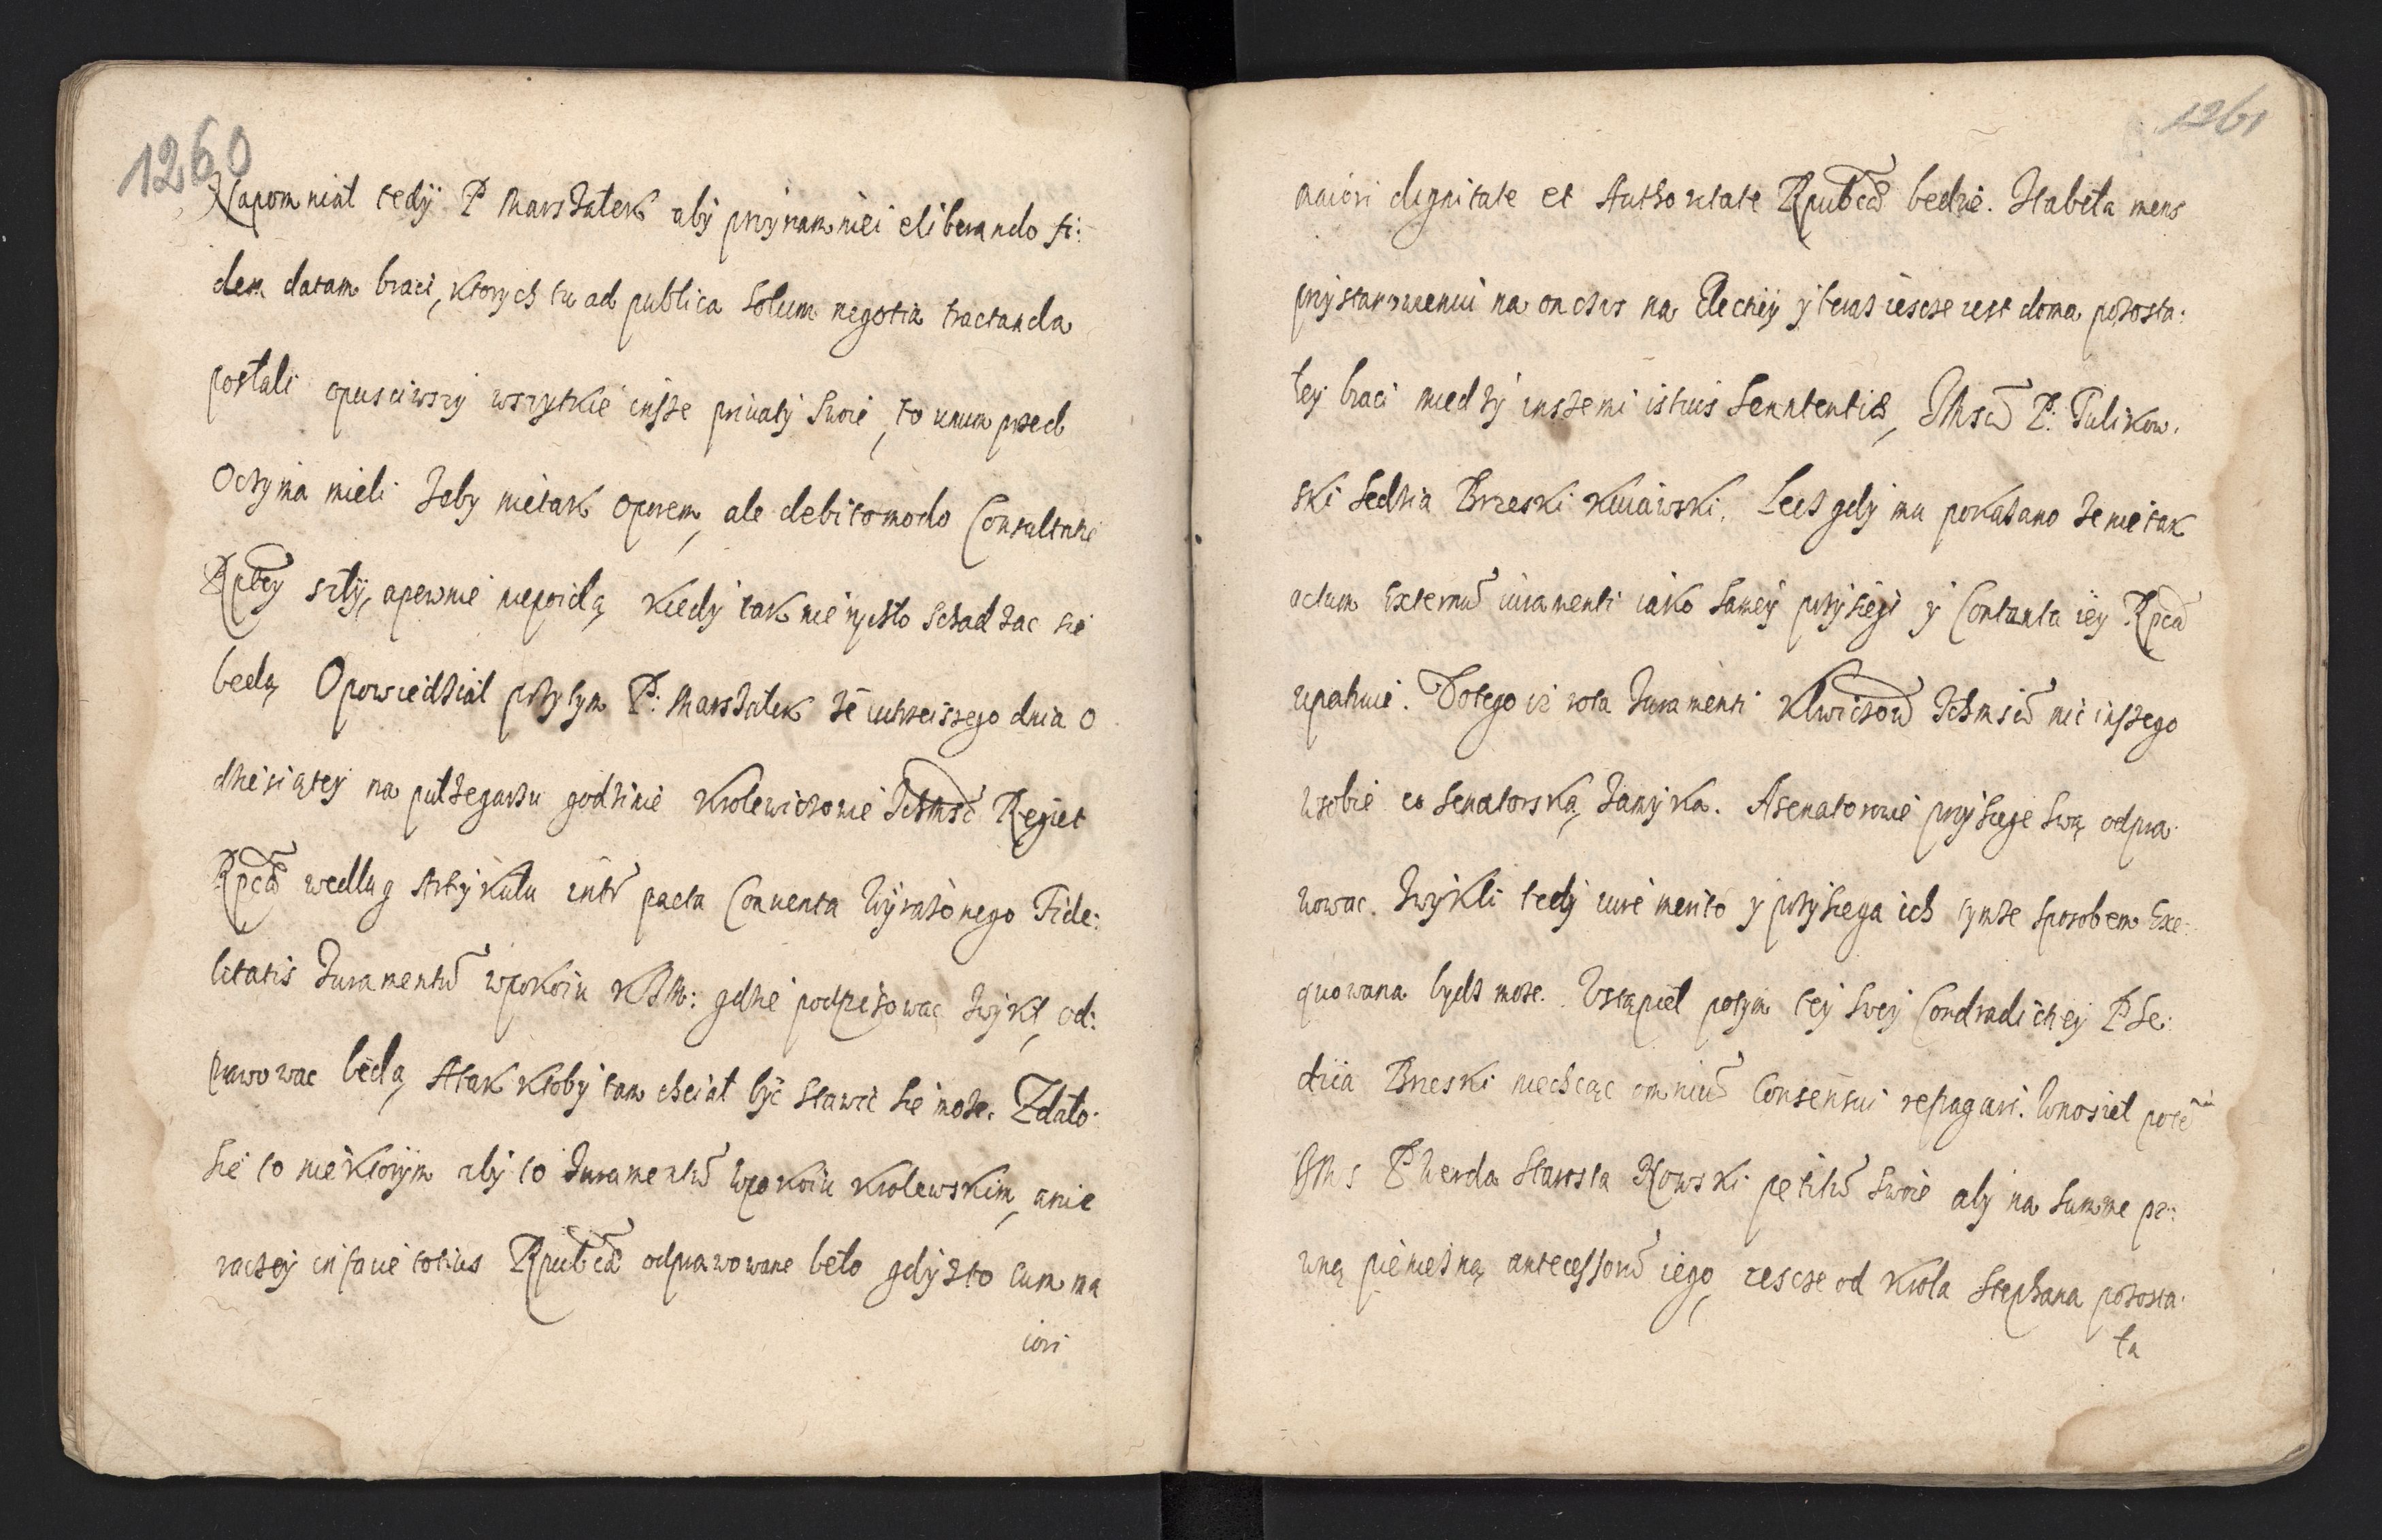 1260
Napomniał tedÿ P Marszałek abÿ prÿnamnièi eliberando fi:
dem datam braci, ktorych tu ad publica solum negotia tractanda
posłali opusciwszÿ wszÿtkie insze priuatÿ swoie, to unum przed
Oczÿma mieli zeby nietak oporem, ale debito modo Consultatie
Rptey szłÿ, apewnie niepoidą kiedÿ tak nierÿchło schadzac się
bedą Opowiedział prÿ tÿm P: Marszałek że iutrzeiszego dnia o
dziesiątey na pułzegarzu godzinie Krolewiczowie Ichmsc Regi et
Rpcæ według Artÿkułu intr pacta Conuenta Wÿrażonego Fide:
litatis Juramentu wpokoiu KJM: gdzie podpisowac zwÿkł, od:
prawowac będą, Atak ktobÿ tam chciał bÿc stawic się może. Zdało
się to niektorÿm abÿ to Juramentu wpokoiu krolewskim, a nie
raczeÿ in facie totius Rpubcæ odprawowane beło gdÿz to cum ma
iori
1261
maiori dignitate et Authoritate Rpubcæ bedzie. Stabeła mens
przÿ stanowieniu na on czas na Electiÿ ÿ teraz iescze iest doma pozosta:
łeÿ braci miedzÿ inszemi istius Senntentiæ, JMsc P. Tulikow.
ski Sedzia Brzeski Kuiawski. Lecz gdÿ mu pokazano ze nie tak
actum Externu iuramenti iako sameÿ przÿsięgi ÿ Contenta ieÿ Rpca
upatruie. Dotego iż rota Juramenti Klwiczow Ichmsciow nic inszego
wsobie co Senatorską zamÿka. A senatorowie przÿsięge swą odpra
wowac. zwÿkli tedÿ iure merito ÿ przÿsięga ich tÿmże sposobem Exe-
quowana bydz może. Vstąpieł potÿm teÿ sweÿ Condradictieÿ P Se:
dzia Brzeski niechcąc omniu Consensui repagari. Wnosieł pote
JMs P Werda Starosta Nowski petitu swoie abÿ na summe pe:
wną pieniezną antecessoru iego, iescze od Krola Stephana pozosta
ła